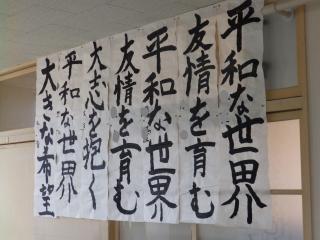 平和な世界
友情を育む
平和な世界
友情を育む
大志を抱く
平和な世界
大きな希望